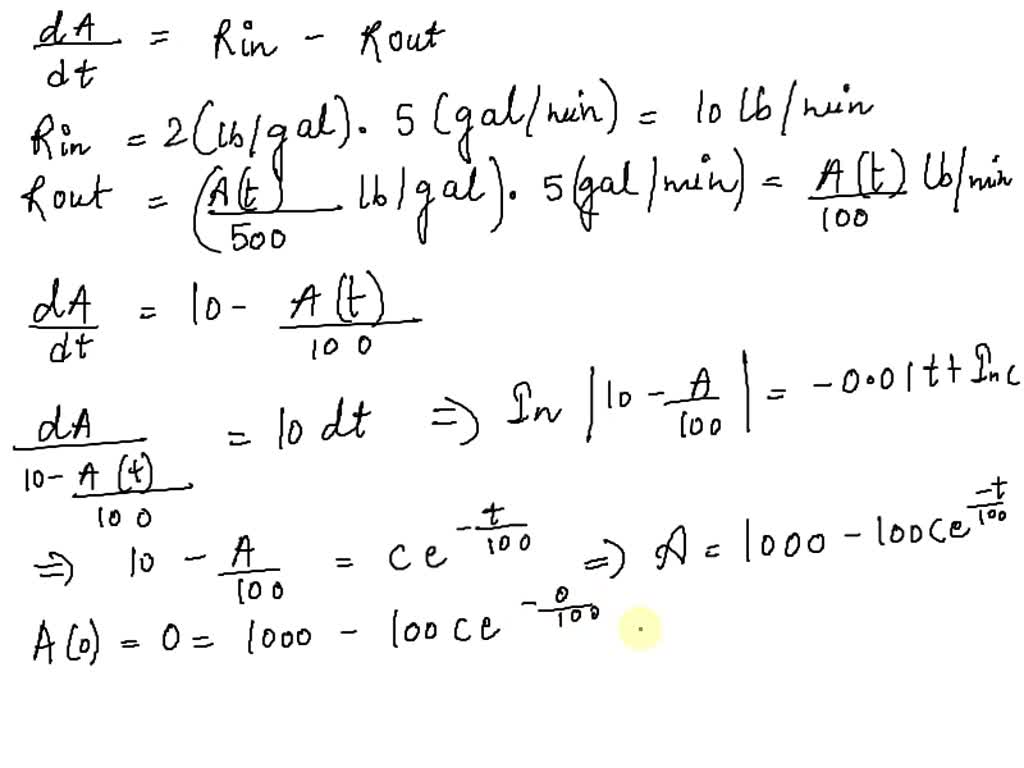 dA/dt = Rin - Rout
Rin = 2(lb/gal). 5(gal/min) = 10 lb/min
Rout = (A(t)/500 lb/gal). 5(gal/min) = A(t)/100 lb/min
dA/dt = 10 - A(t)/100
dA/(10 - A(t)/100) = 10 dt => In |10 - A/100| = -0.01t + In c
=> 10 - A/100 = ce^(-t/100) => A = 1000 - 100ce^(-t/100)
A(0) = 0 = 1000 - 100ce^(-0/100)